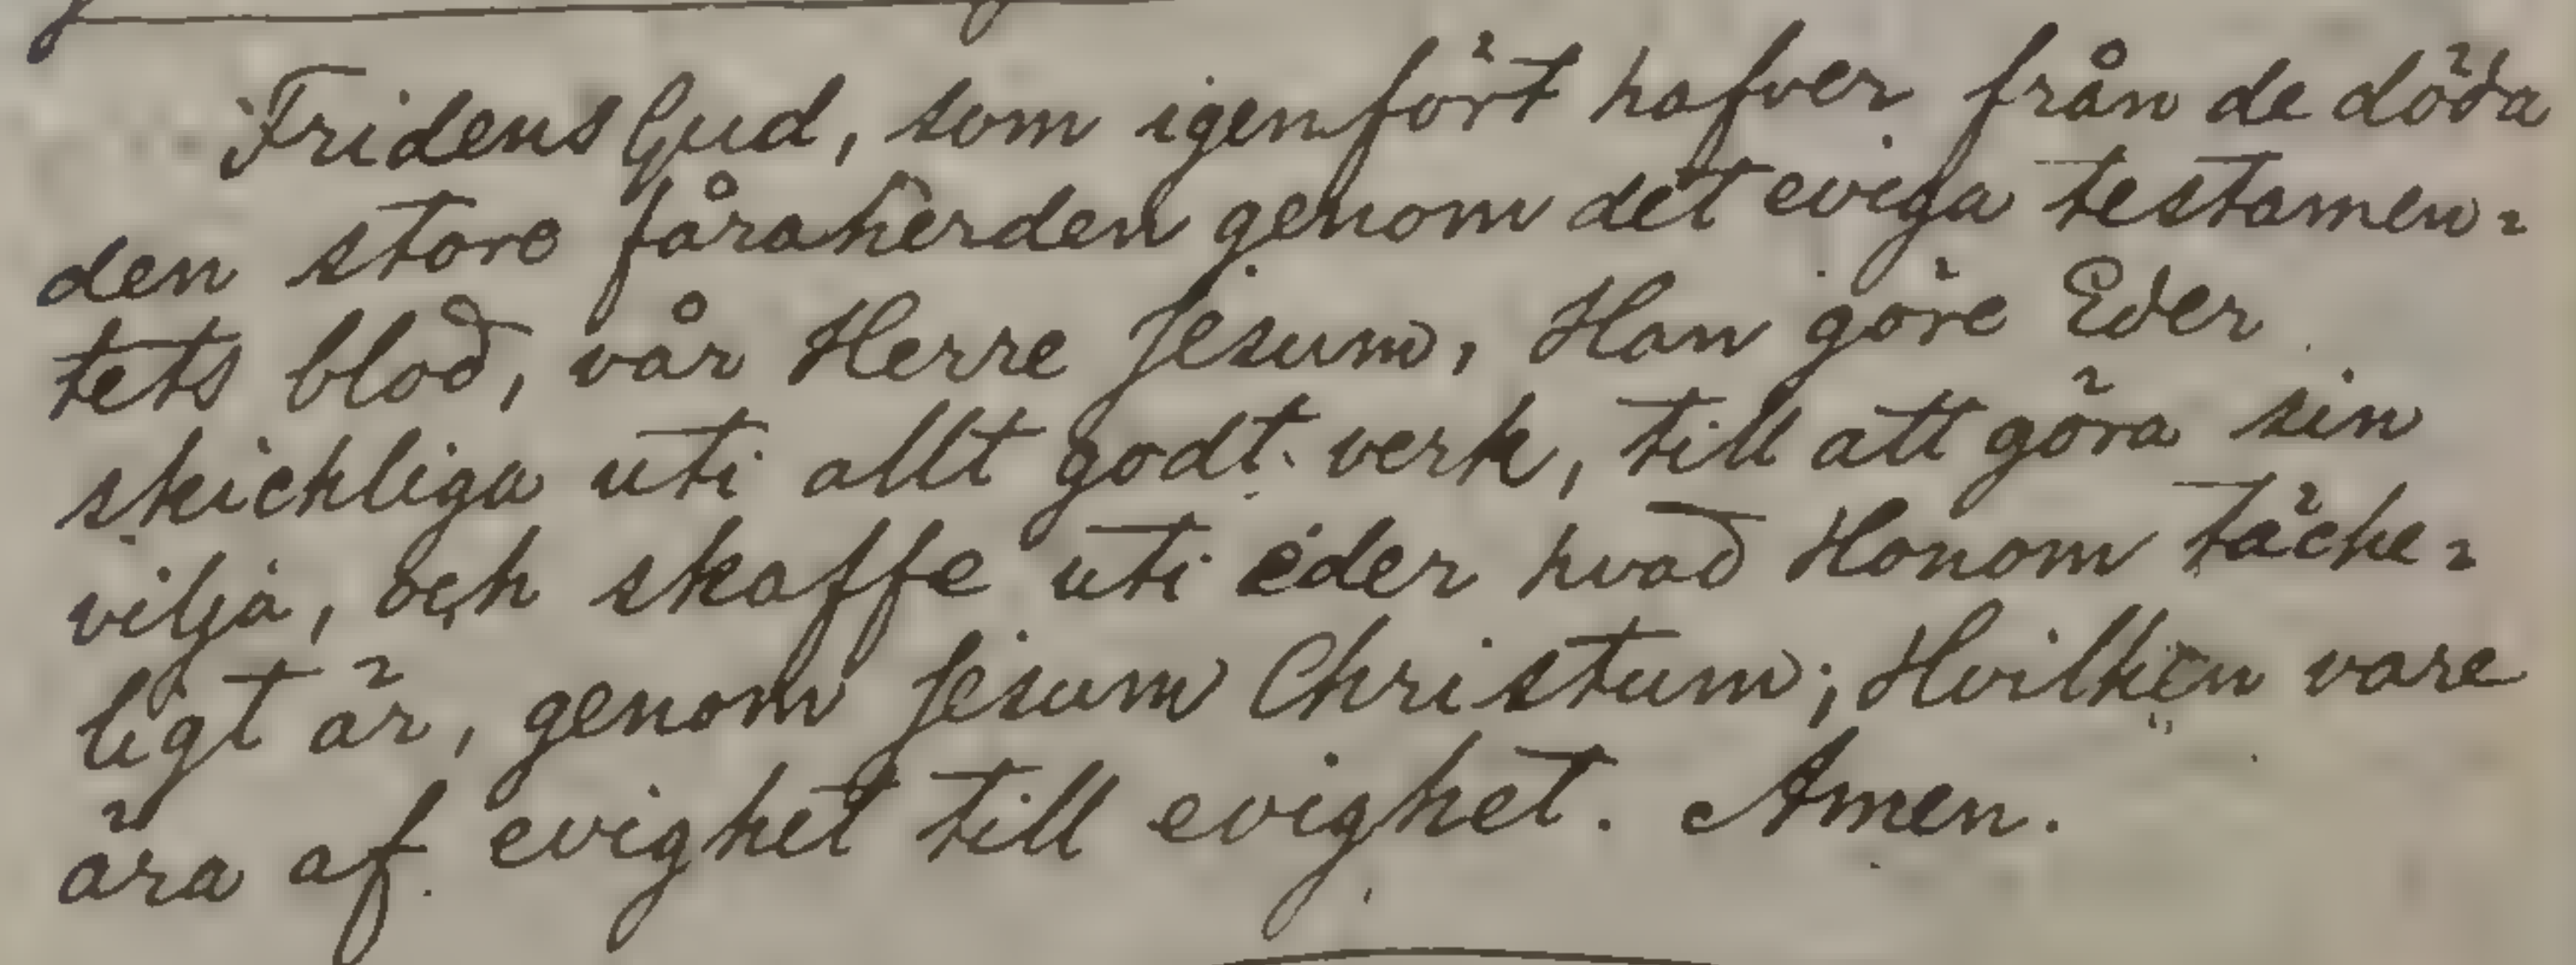 Fridens Gud, som igenfört hafver från de döda
den store fåraherden genom det eviga testamen-
tets blod, vår Herre Jesum, Han göre Eder
skickliga uti allt godt verk, till att göra sin
vilja, och skaffe uti eder hvad Honom täcke-
ligt är, genom Jesum Christum; Hvilken vare
ära af evighet till evighet. Amen.